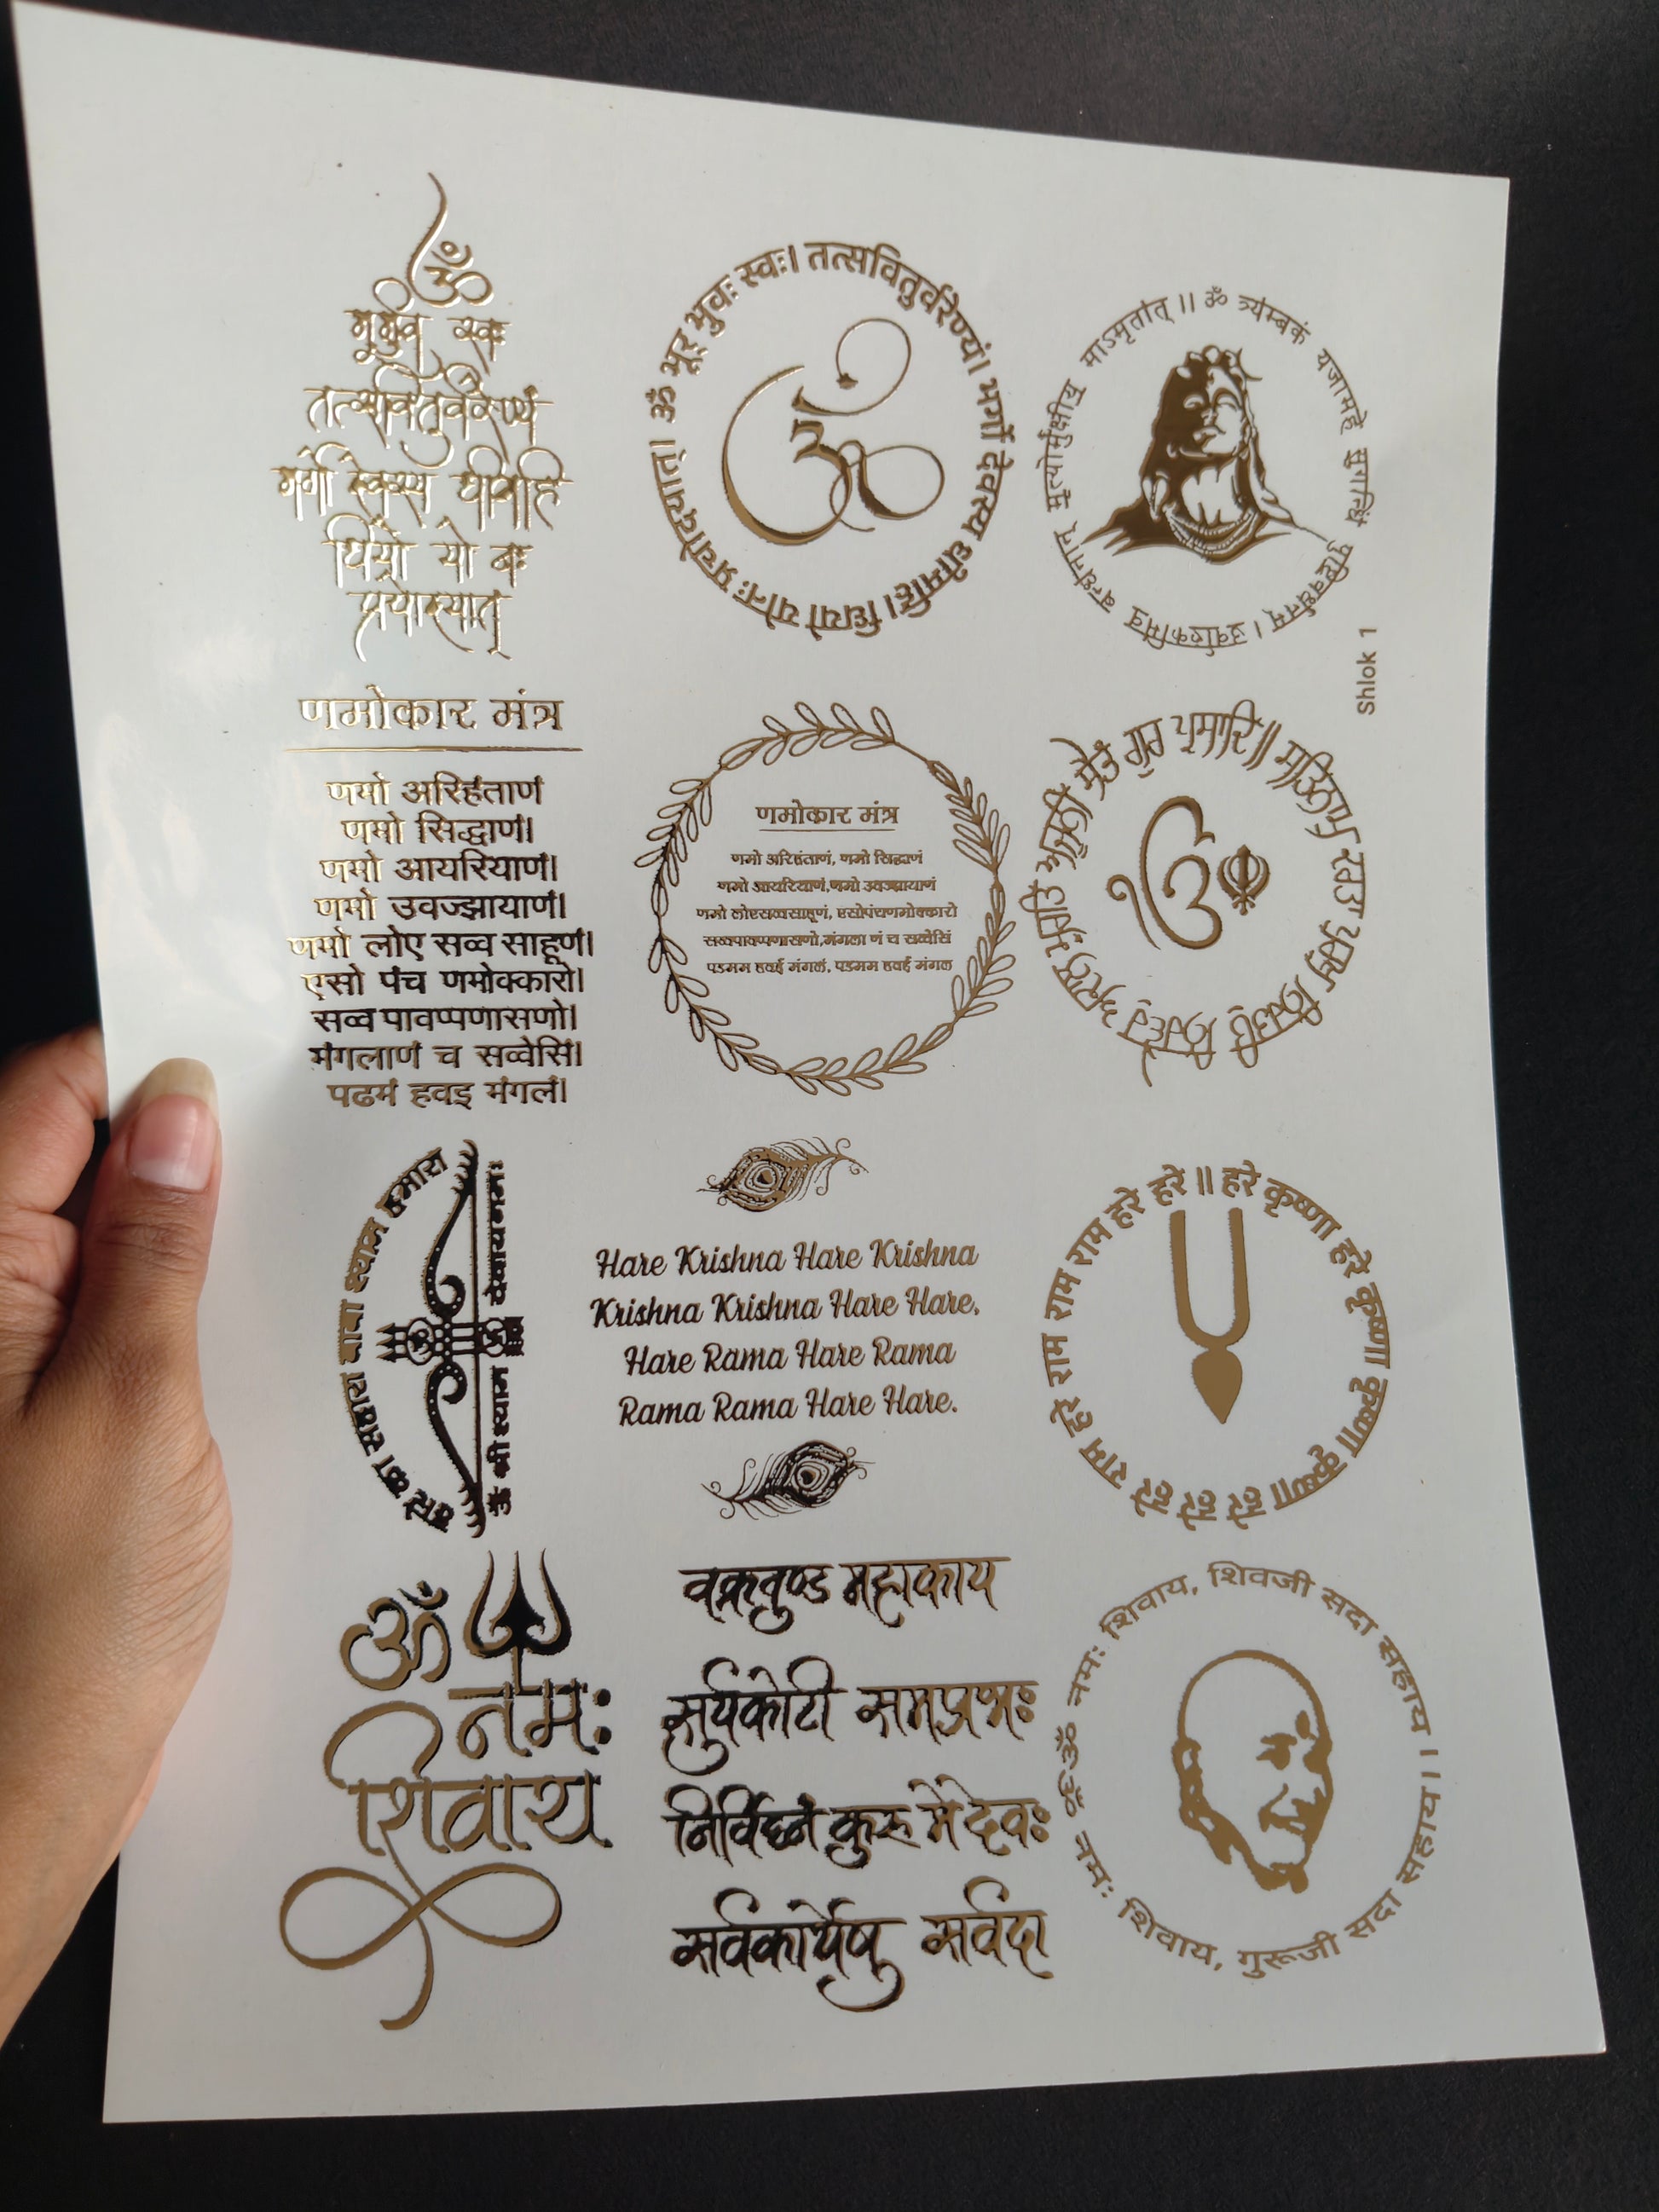 ॐ
भूर्भुव स्वः
तत्सवितुर्वरेण्यं
भर्गो देवस्य धीमहि
धियो यो नः
प्रचोदयात्
ॐ भूर् भुवः स्वः। तत्सवितुर्वरेण्यं। भर्गो देवस्य धीमहि। धियो योनः प्रचोदयात्।
ॐ त्र्यम्बकं यजामहे सुगन्धिं पुष्टिवर्धनम्। उर्वारुकमिव बन्धनान् मृत्योर्मुक्षीय माऽमृतात् ||
Shlok 1
णमोकार मंत्र
णमो अरिहंताणं
णमो सिद्धाणं।
णमो आयरियाणं।
णमो उवज्झायाणं।
णमो लोए सव्व साहूणं।
एसो पंच णमोक्कारो।
सव्व पावप्पणासणो।
मंगलाणं च सव्वेसिं।
पढमं हवइ मंगलं।
णमोकार मंत्र
णमो अरिहंताणं, णमो सिद्धाणं
णमो आयरियाणं,णमो उवज्झायाणं
णमो लोएसव्वसाहूणं, एसोपंचणमोक्कारो
सव्वपावप्पणासणो,मंगला णं च सव्वेसिं
पडमम हवई मंगलं, पडमम हवई मंगल
ੴ
ਸਤਿਨਾਮੁ ਕਰਤਾ ਪੁਰਖੁ ਨਿਰਭਉ ਨਿਰਵੈਰੁ ਅਕਾਲ ਮੂਰਤਿ ਅਜੂਨੀ ਸੈਭੰ ਗੁਰ ਪ੍ਰਸਾਦਿ॥
हारे का सहारा बाबा श्याम हमारा
ॐ श्री श्याम देवाय नमः
Hare Krishna Hare Krishna
Krishna Krishna Hare Hare,
Hare Rama Hare Rama
Rama Rama Hare Hare.
हरे कृष्णा हरे कृष्णा कृष्णा कृष्णा हरे हरे हरे राम हरे राम राम राम हरे हरे ||
ॐ
नमः
शिवाय
वक्रतुण्ड महाकाय
सुर्यकोटी समप्रभः
निर्विघ्नं कुरु मे देवः
सर्वकार्येषु सर्वदा
ॐ नमः शिवाय, शिवजी सदा सहाय।
ॐ नमः शिवाय, गुरूजी सदा सहाय।